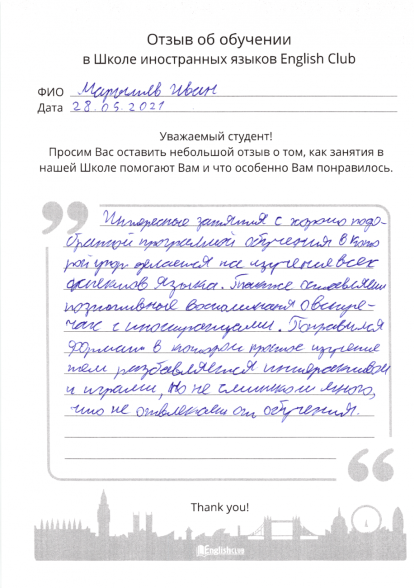 Отзыв об обучении
в Школе иностранных языков English Club
ФИО Мартылив Иван
Дата 28.05.2021
Уважаемый студент!
Просим Вас оставить небольшой отзыв о том, как занятия в
нашей Школе помогают Вам и что особенно Вам понравилось.
Интересные занятия с хорошо подо-
бранной программой обучения в кото
рой упор делается на изучение всех
аспектов языка. Также оставляет
позитивные воспоминания о встре-
чах с иностранцами. Понравился
формат в котором простое изучение
тем разбавляется интерактивом
и играми, но не слишком много,
что не отвлекает от обучения.
Thank you!
EnglishClub